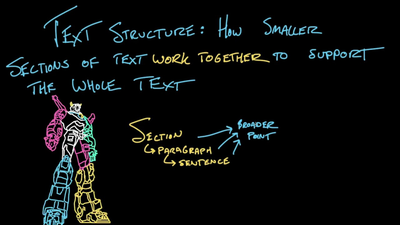 Text Structure: How Smaller
Sections of text work together to support
the whole Text
Section
Paragraph
Sentence
Broader
Point